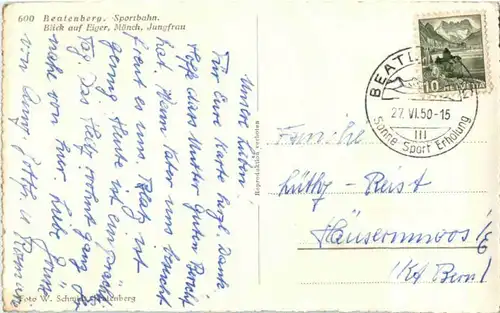 600 Beatenberg. Sportbahn.
Blick auf Eiger, Mönch, Jungfrau
Unsere Lieben!
Für Eure Karte herzl. Dank
Hoffe dass Mutter guten Bericht
hat. Wenn Vater uns besucht
freut es uns. Platz ist
genug. Heute ist ein prächt.
Tag. Das Hedy wohnt ganz
nahe von hier. Liebe Grüsse
von
Foto W. Schmid, Beatenberg
Reproduktion verboten
BEATENBERG
27. VI. 50 - 15
III
Sonne Sport Erholung
10
HELVETIA
Familie
Lüthy-Reist
Häusernmoos i/E
(Kt Bern)